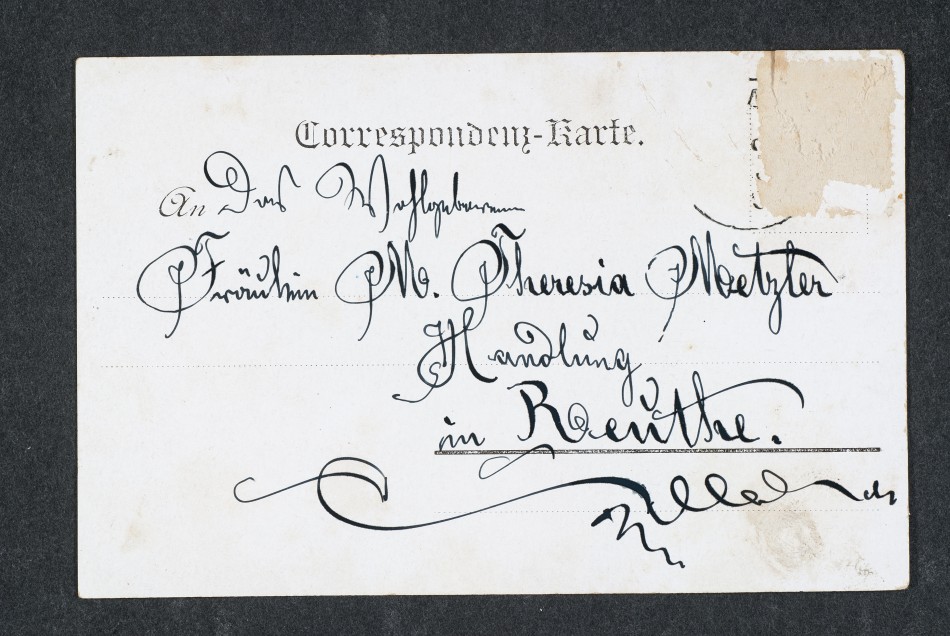 Correspondenz-Karte.
An Das Wohlgeboren
Fräulein M. Theresia Metzler
Handlung
in Reuthe.